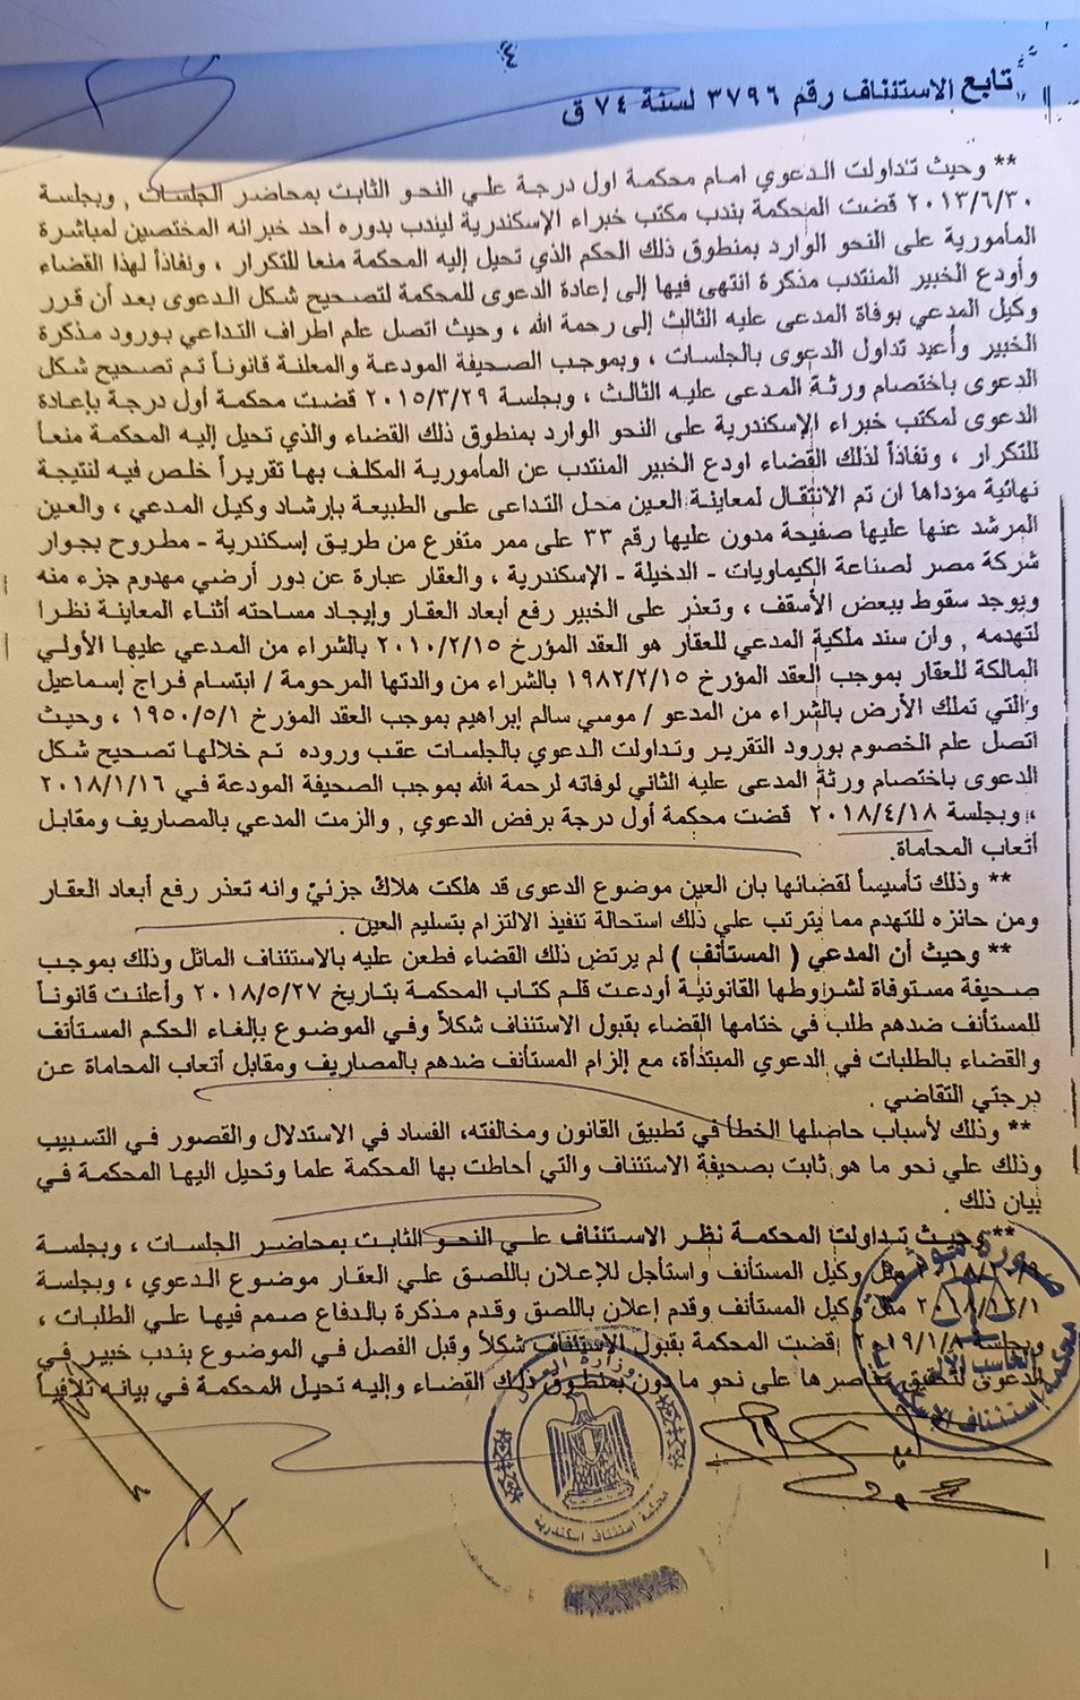 ٤
تابع الاستئناف رقم ٣٧٩٦ لسنة ٧٤ ق
** وحيث تداولت الدعوي امام محكمة اول درجة علي النحو الثابت بمحاضر الجلسات , وبجلسة
٢٠١٣/٦/٣٠ قضت المحكمة بندب مكتب خبراء الإسكندرية ليندب بدوره أحد خبرائه المختصين لمباشرة
المأمورية على النحو الوارد بمنطوق ذلك الحكم الذي تحيل إليه المحكمة منعا للتكرار ، ونفاذاً لهذا القضاء
وأودع الخبير المنتدب مذكرة انتهى فيها إلى إعادة الدعوى للمحكمة لتصحيح شكل الدعوى بعد أن قرر
وكيل المدعي بوفاة المدعى عليه الثالث إلى رحمة الله ، وحيث اتصل علم اطراف التداعي بورود مذكرة
الخبير وأعيد تداول الدعوى بالجلسات ، وبموجب الصحيفة المودعة والمعلنة قانوناً تم تصحيح شكل
الدعوى باختصام ورثة المدعى عليه الثالث ، وبجلسة ٢٠١٥/٣/٢٩ قضت محكمة أول درجة بإعادة
الدعوى لمكتب خبراء الإسكندرية على النحو الوارد بمنطوق ذلك القضاء والذي تحيل إليه المحكمة منعاً
للتكرار ، ونفاذاً لذلك القضاء اودع الخبير المنتدب عن المأمورية المكلف بها تقريراً خلص فيه لنتيجة
نهائية مؤداها ان تم الانتقال لمعاينة العين محل التداعى على الطبيعة بإرشاد وكيل المدعي ، والعين
المرشد عنها عليها صفيحة مدون عليها رقم ٣٣ على ممر متفرع من طريق إسكندرية - مطروح بجوار
شركة مصر لصناعة الكيماويات - الدخيلة - الإسكندرية ، والعقار عبارة عن دور أرضي مهدوم جزء منه
ويوجد سقوط ببعض الأسقف ، وتعذر على الخبير رفع أبعاد العقار وإيجاد مساحته أثناء المعاينة نظرا
لتهدمه , وان سند ملكية المدعي للعقار هو العقد المؤرخ ٢٠١٠/٢/١٥ بالشراء من المدعي عليها الأولي
المالكة للعقار بموجب العقد المؤرخ ١٩٨٢/٢/١٥ بالشراء من والدتها المرحومة / ابتسام فراج إسماعيل
والتي تملك الأرض بالشراء من المدعو / موسي سالم إبراهيم بموجب العقد المؤرخ ١٩٥٠/٥/١ ، وحيث
اتصل علم الخصوم بورود التقرير وتداولت الدعوي بالجلسات عقب وروده تم خلالها تصحيح شكل
الدعوى باختصام ورثة المدعى عليه الثاني لوفاته لرحمة الله بموجب الصحيفة المودعة في ٢٠١٨/١/١٦
، وبجلسة ٢٠١٨/٤/١٨ قضت محكمة أول درجة برفض الدعوي , والزمت المدعي بالمصاريف ومقابل
أتعاب المحاماة.
** وذلك تأسيساً لقضائها بان العين موضوع الدعوى قد هلكت هلاكً جزئيّ وانه تعذر رفع أبعاد العقار
ومن حائزه للتهدم مما يترتب علي ذلك استحالة تنفيذ الالتزام بتسليم العين .
** وحيث أن المدعي ( المستأنف ) لم يرتض ذلك القضاء فطعن عليه بالاستئناف الماثل وذلك بموجب
صحيفة مستوفاة لشروطها القانونية أودعت قلم كتاب المحكمة بتاريخ ٢٠١٨/٥/٢٧ وأعلنت قانوناً
للمستأنف ضدهم طلب في ختامها القضاء بقبول الاستئناف شكلاً وفي الموضوع بإلغاء الحكم المستأنف
والقضاء بالطلبات في الدعوي المبتدأة، مع إلزام المستأنف ضدهم بالمصاريف ومقابل أتعاب المحاماة عن
درجتي التقاضي .
** وذلك لأسباب حاصلها الخطأ في تطبيق القانون ومخالفته، الفساد في الاستدلال والقصور في التسبيب
وذلك علي نحو ما هو ثابت بصحيفة الاستئناف والتي أحاطت بها المحكمة علما وتحيل اليها المحكمة في
بيان ذلك .
** وحيث تداولت المحكمة نظر الاستئناف علي النحو الثابت بمحاضر الجلسات ، وبجلسة
مثل وكيل المستأنف واستأجل للإعلان باللصق علي العقار موضوع الدعوي ، وبجلسة
٢٠١٨/١٢/١ مثل وكيل المستأنف وقدم إعلان باللصق وقدم مذكرة بالدفاع صمم فيها علي الطلبات ،
وبجلسة ٢٠١٩/١/٨ قضت المحكمة بقبول الاستئناف شكلاً وقبل الفصل في الموضوع بندب خبير في
الدعوى لتحقيق عناصرها على نحو ما دون بمنطوق ذلك القضاء وإليه تحيل المحكمة في بيانه تلافياً
وزارة العدل
محكمة استئناف اسكندرية
محكمة إستئناف الإسكندرية